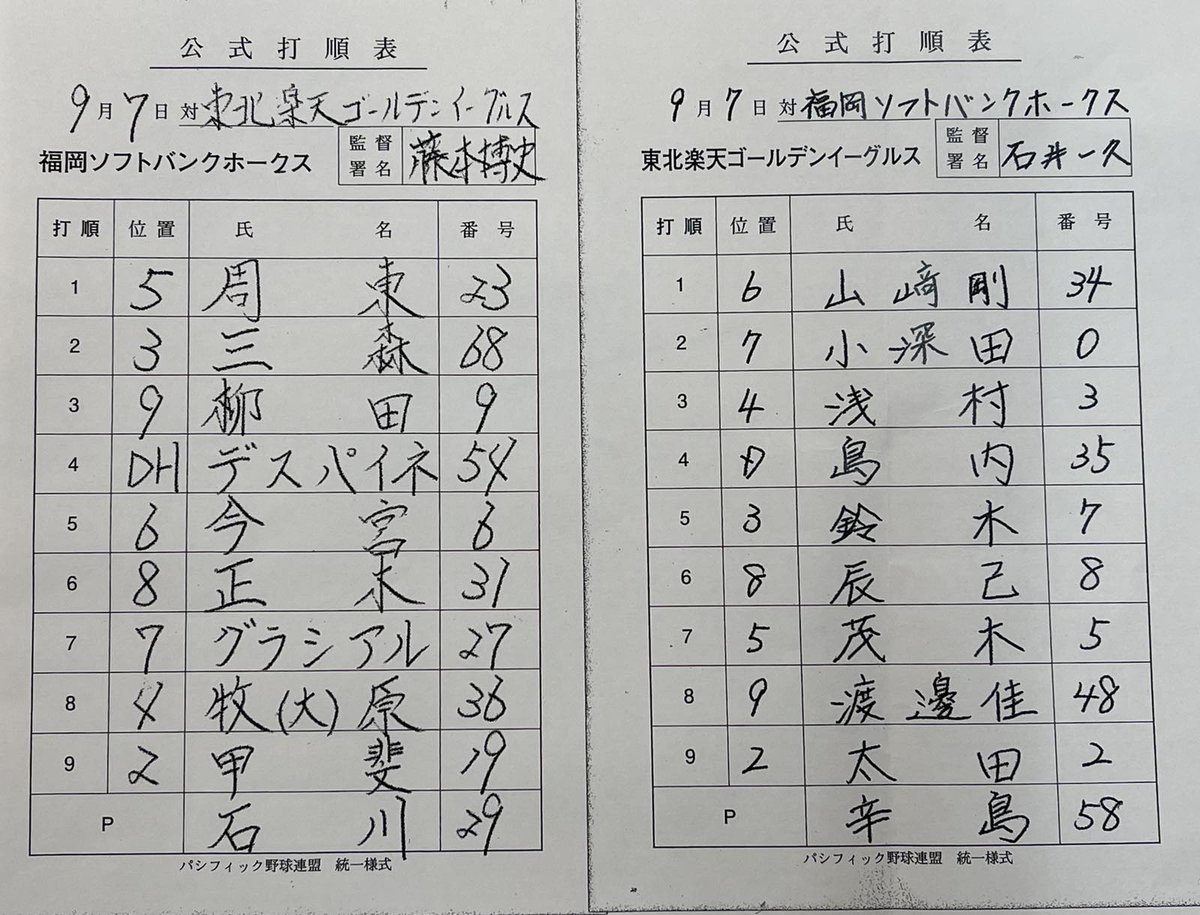 公式打順表
9月7日 対 東北楽天ゴールデンイーグルス
福岡ソフトバンクホークス 監督署名 藤本博史
打順 位置 氏名 番号
1 5 周東 23
2 3 三森 68
3 9 柳田 9
4 DH デスパイネ 54
5 6 今宮 6
6 8 正木 31
7 7 グラシアル 27
8 4 牧(大)原 36
9 2 甲斐 19
P 石川 29
パシフィック野球連盟 統一様式
公式打順表
9月7日 対 福岡ソフトバンクホークス
東北楽天ゴールデンイーグルス 監督署名 石井一久
打順 位置 氏名 番号
1 6 山﨑剛 34
2 7 小深田 0
3 4 浅村 3
4 D 島内 35
5 3 鈴木 7
6 8 辰己 8
7 5 茂木 5
8 9 渡邊佳 48
9 2 太田 2
P 辛島 58
パシフィック野球連盟 統一様式